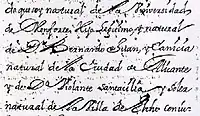 y natural de la Universidad
de Monforte, Hijo legitimo, y natural
de Dn. Fernando Juan, y Canicia
natural de la Ciudad de Alicante
y de Da. Violante Santacilia y Soler
natural de la Villa de